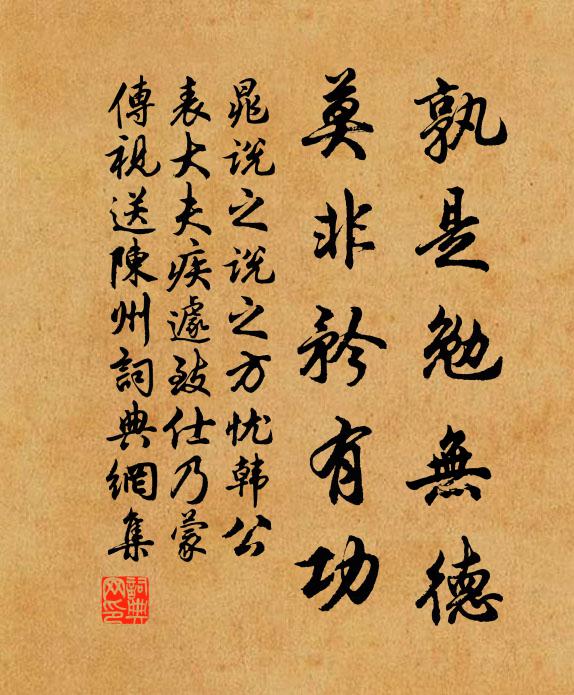 孰是勉無德
莫非矜有功
晁說之說之方忧韩公
表大夫疾遽致仕乃蒙
傳視送陳州詞典網集
詞典網印